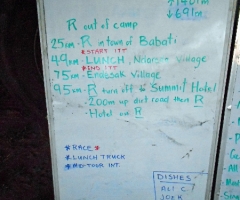 ↑1401m
↓691m
R out of camp
25km - R in town of Babati
*START ITT
49km - LUNCH, Village
*END ITT
75km - Endasak Village
95km - R turn off to Summit Hotel
- 200m up dirt road then R
- Hotel on R
* RACE *
* LUNCH TRUCK
DISHES:
ALI C.